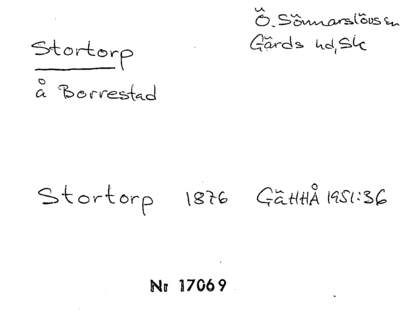 Stortorp
Ö. Sönnarslövs sn
Gärds hd, Sk
å Borrestad
Stortorp 1876 GäHHÅ 1951:36
Nr 17069